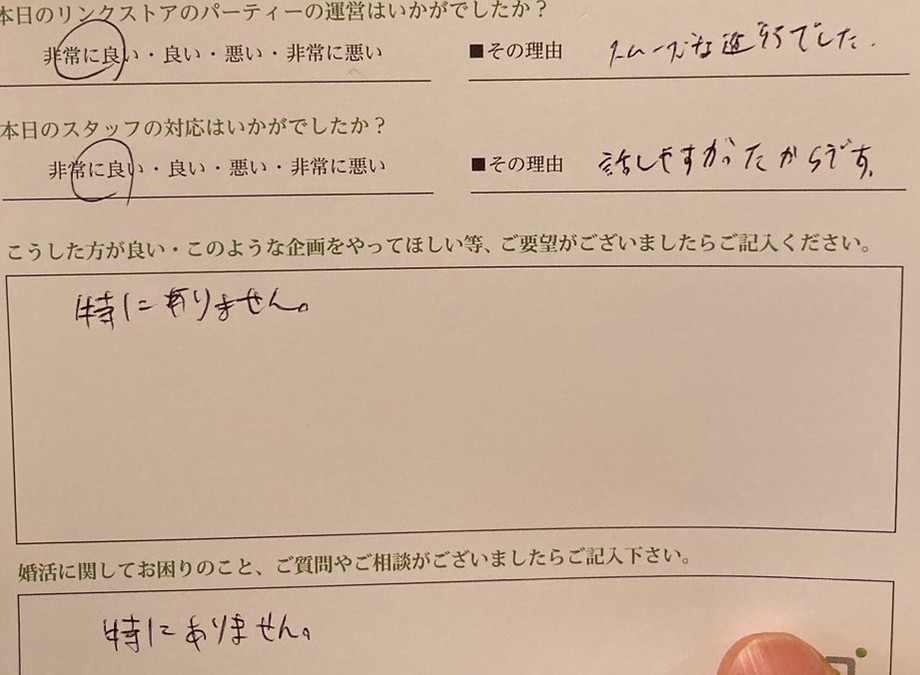 本日のリンクストアのパーティーの運営はいかがでしたか？
非常に良い・良い・悪い・非常に悪い ■その理由 スムーズな進行でした.
本日のスタッフの対応はいかがでしたか？
非常に良い・良い・悪い・非常に悪い ■その理由 話しやすかったからです。
こうした方が良い・このような企画をやってほしい等、ご要望がございましたらご記入ください。
特にありません。
婚活に関してお困りのこと、ご質問やご相談がございましたらご記入下さい。
特にありません。